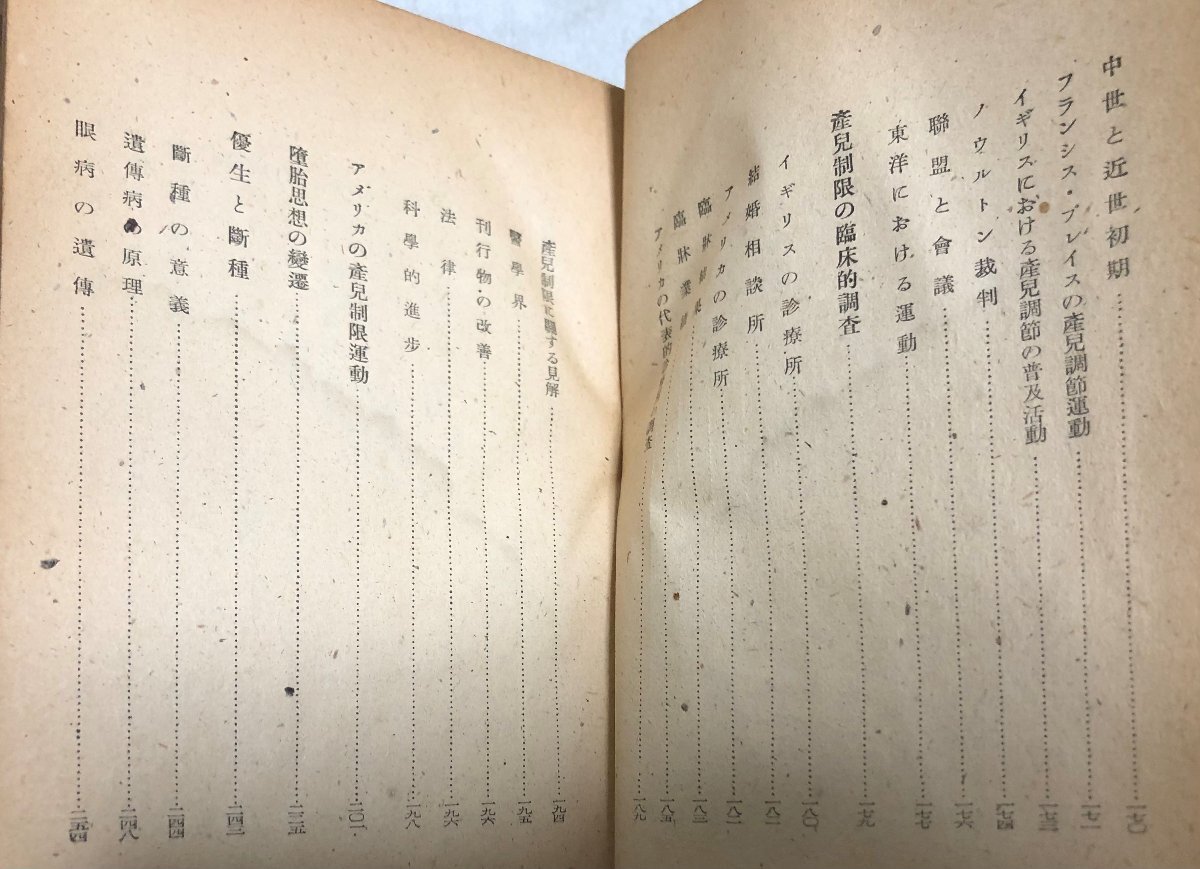 中世と近世初期……一七〇
フランシス・プレイスの產兒調節運動……一七一
イギリスにおける產兒調節の普及活動……一七三
ノウルトン裁判……一七四
聯盟と會議……一七六
東洋における運動……一七七
產兒制限の臨床的調査……一七九
イギリスの診療所……一八〇
結婚相談所……一八一
アメリカの診療所……一八二
臨牀……一八三
臨牀業……一八五
アメリカの代表的……調査……一八九
產兒制限に關する見解……一九四
醫學界……一九五
刊行物の改善……一九六
法律……一九六
科學的進步……一九八
アメリカの產兒制限運動……二〇一
墮胎思想の變遷……二二五
優生と斷種……二四三
斷種の意義……二四四
遺傳病の原理……二四八
眼病の遺傳……二五四